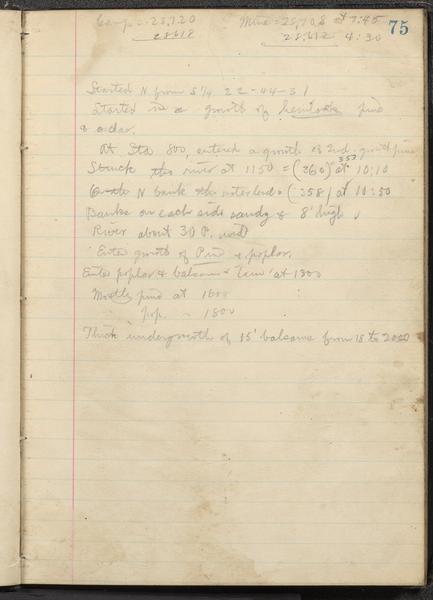 Camp = 28,720 Mine = 28,708 at 7:45 75
28618 28,612 4:30
Started N from S 1/4 22-44-31
Started in a growth of hemlock pine
& cedar.
At Sta 800, entered a growth of 2nd growth pine
Struck the river at 1150 = (360) 357 at 10:10
On the N bank the water (358) at 10:50
Banks on each side sandy & 8' high
River about 30 P.
Enter growth of Pine & poplar.
Enter poplar & balsam at 1300
Mostly pine at 1600
pop. - 1800
Thick undergrowth of 15' balsams from 18 to 2000